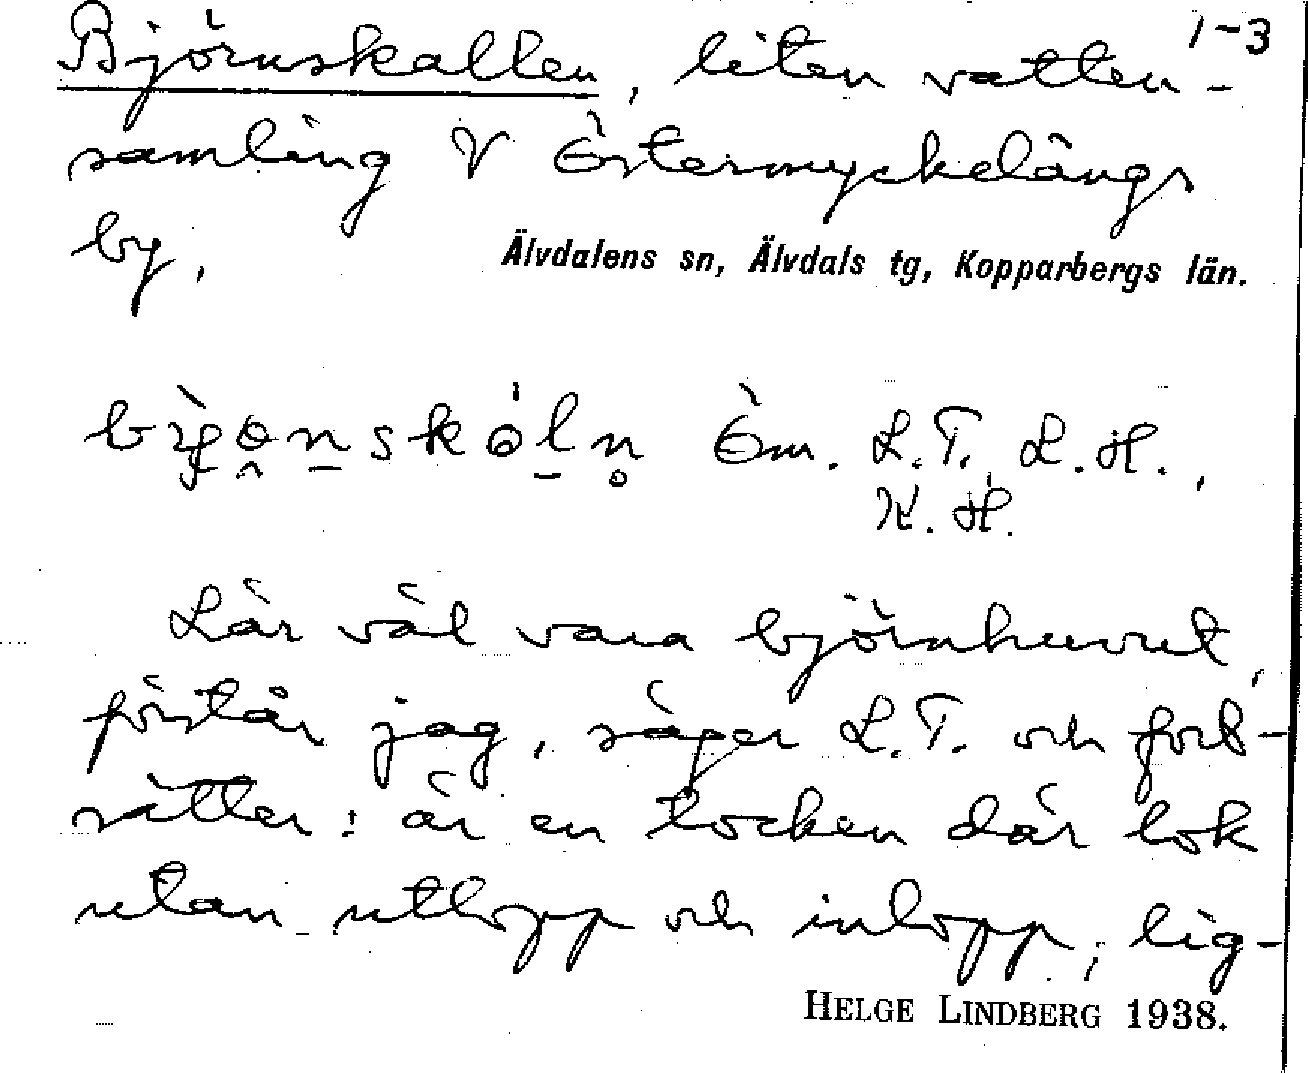 1-3
Björnskallen, liten vatten-
samling V Östermyckelängs
by.
Älvdalens sn, Älvdals tg, Kopparbergs län.
Öm. L.T. L.H.,
K.H.
Lär väl vara björnhuvut,
förstår jag, säger L.T. och fort-
sätter: är en tocken där lok
utan utlopp och inlopp; lig-
HELGE LINDBERG 1938.